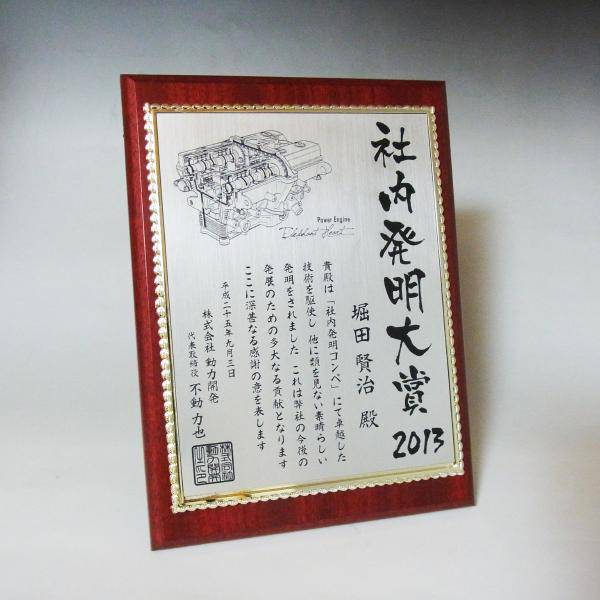 社内発明大賞 2013
Power Engine
Elephant Heart
堀田 賢治 殿
貴殿は「社内発明コンペ」にて卓越した
技術を駆使し 他に類を見ない素晴らしい
発明をされました これは弊社の今後の
発展のための多大なる貢献となります
ここに深甚なる感謝の意を表します
平成二十五年九月三日
株式会社 動力開発
代表取締役 不動 力也